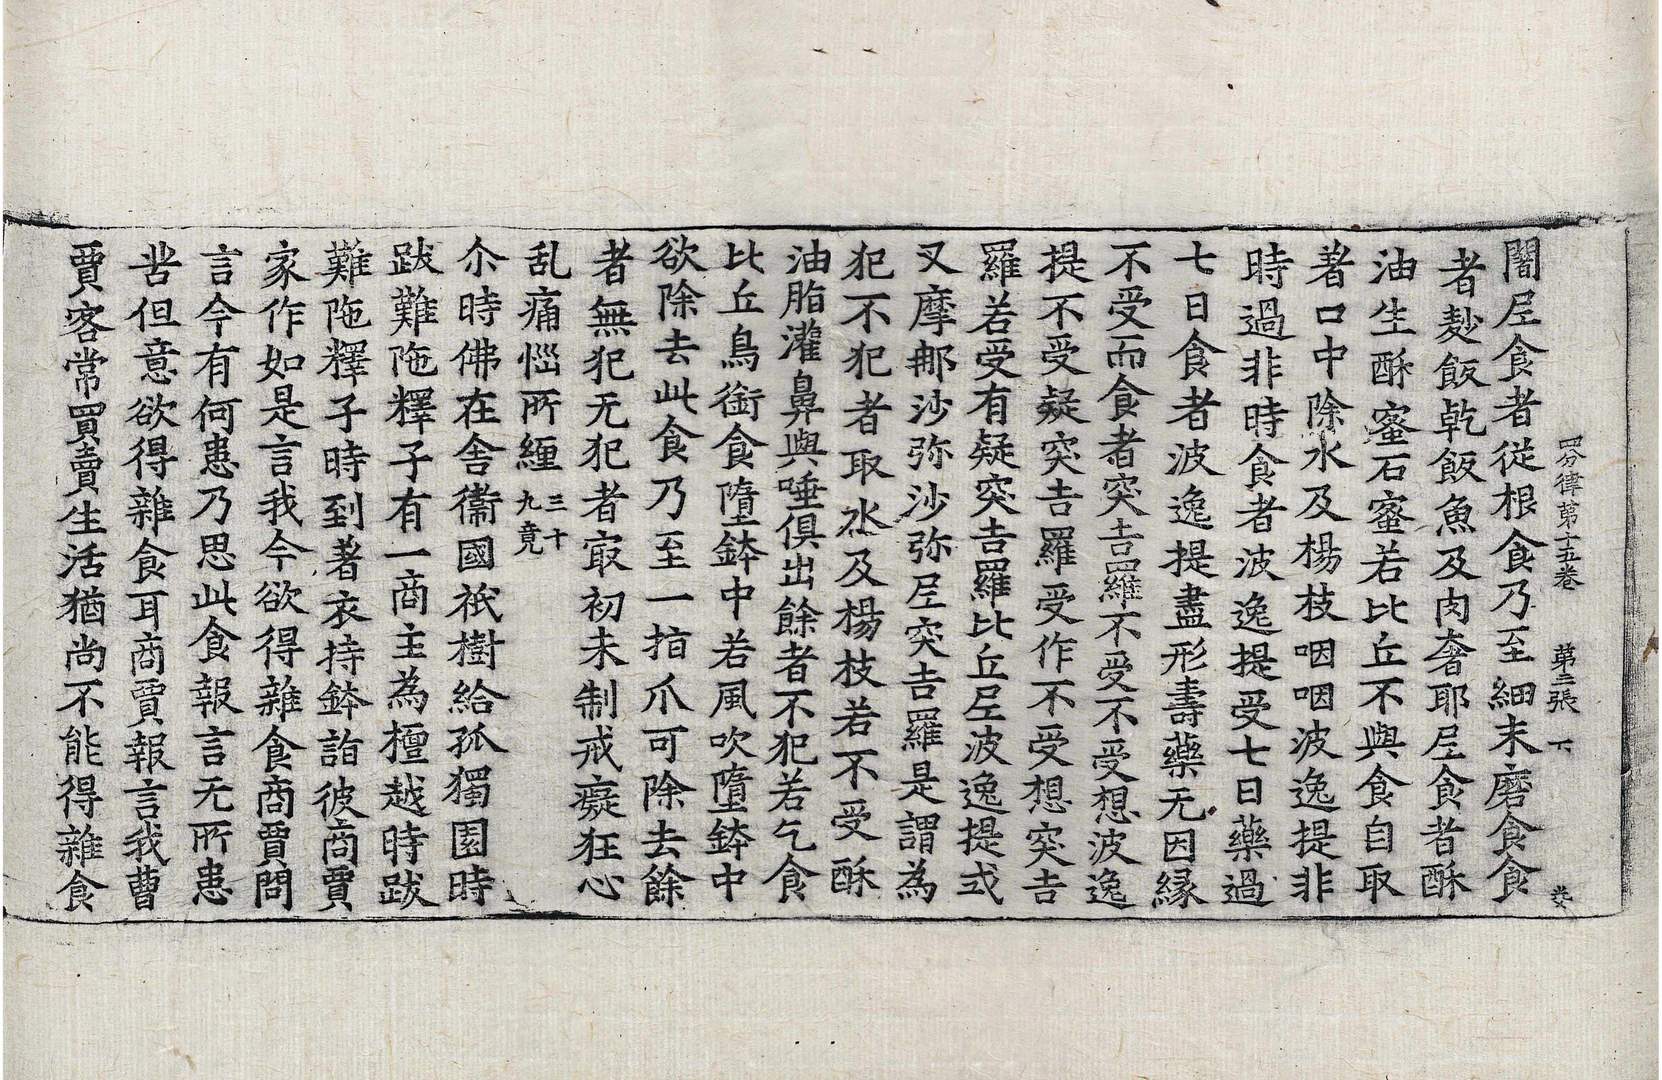 四分律第十五卷 第二張 下
闍尼食者從根食乃至細末磨食食
者麨飯乾飯魚及肉奢耶尼食者酥
油生酥蜜石蜜若比丘不與食自取
著口中除水及楊枝咽咽波逸提非
時過非時食者波逸提受七日藥過
七日食者波逸提盡形壽藥无因緣
不受而食者突吉羅不受不受想波逸
提不受疑突吉羅受作不受想突吉
羅若受有疑突吉羅比丘尼波逸提式
叉摩那沙弥沙弥尼突吉羅是謂為
犯不犯者取水及楊枝若不受酥
油脂灌鼻與唾俱出餘者不犯若乞食
比丘鳥銜食墮鉢中若風吹墮鉢中
欲除去此食乃至一指爪可除去餘
者無犯无犯者㝡初未制戒癡狂心
乱痛惱所纏三十九竟
尒時佛在舍衞國祇樹給孤獨園時
跋難陁釋子有一商主為檀越時跋
難陁釋子時到著衣持鉢詣彼商賈
家作如是言我今欲得雜食商賈問
言今有何患乃思此食報言无所患
苦但意欲得雜食耳商賈報言我曹
賈客常買賣生活猶尚不能得雜食